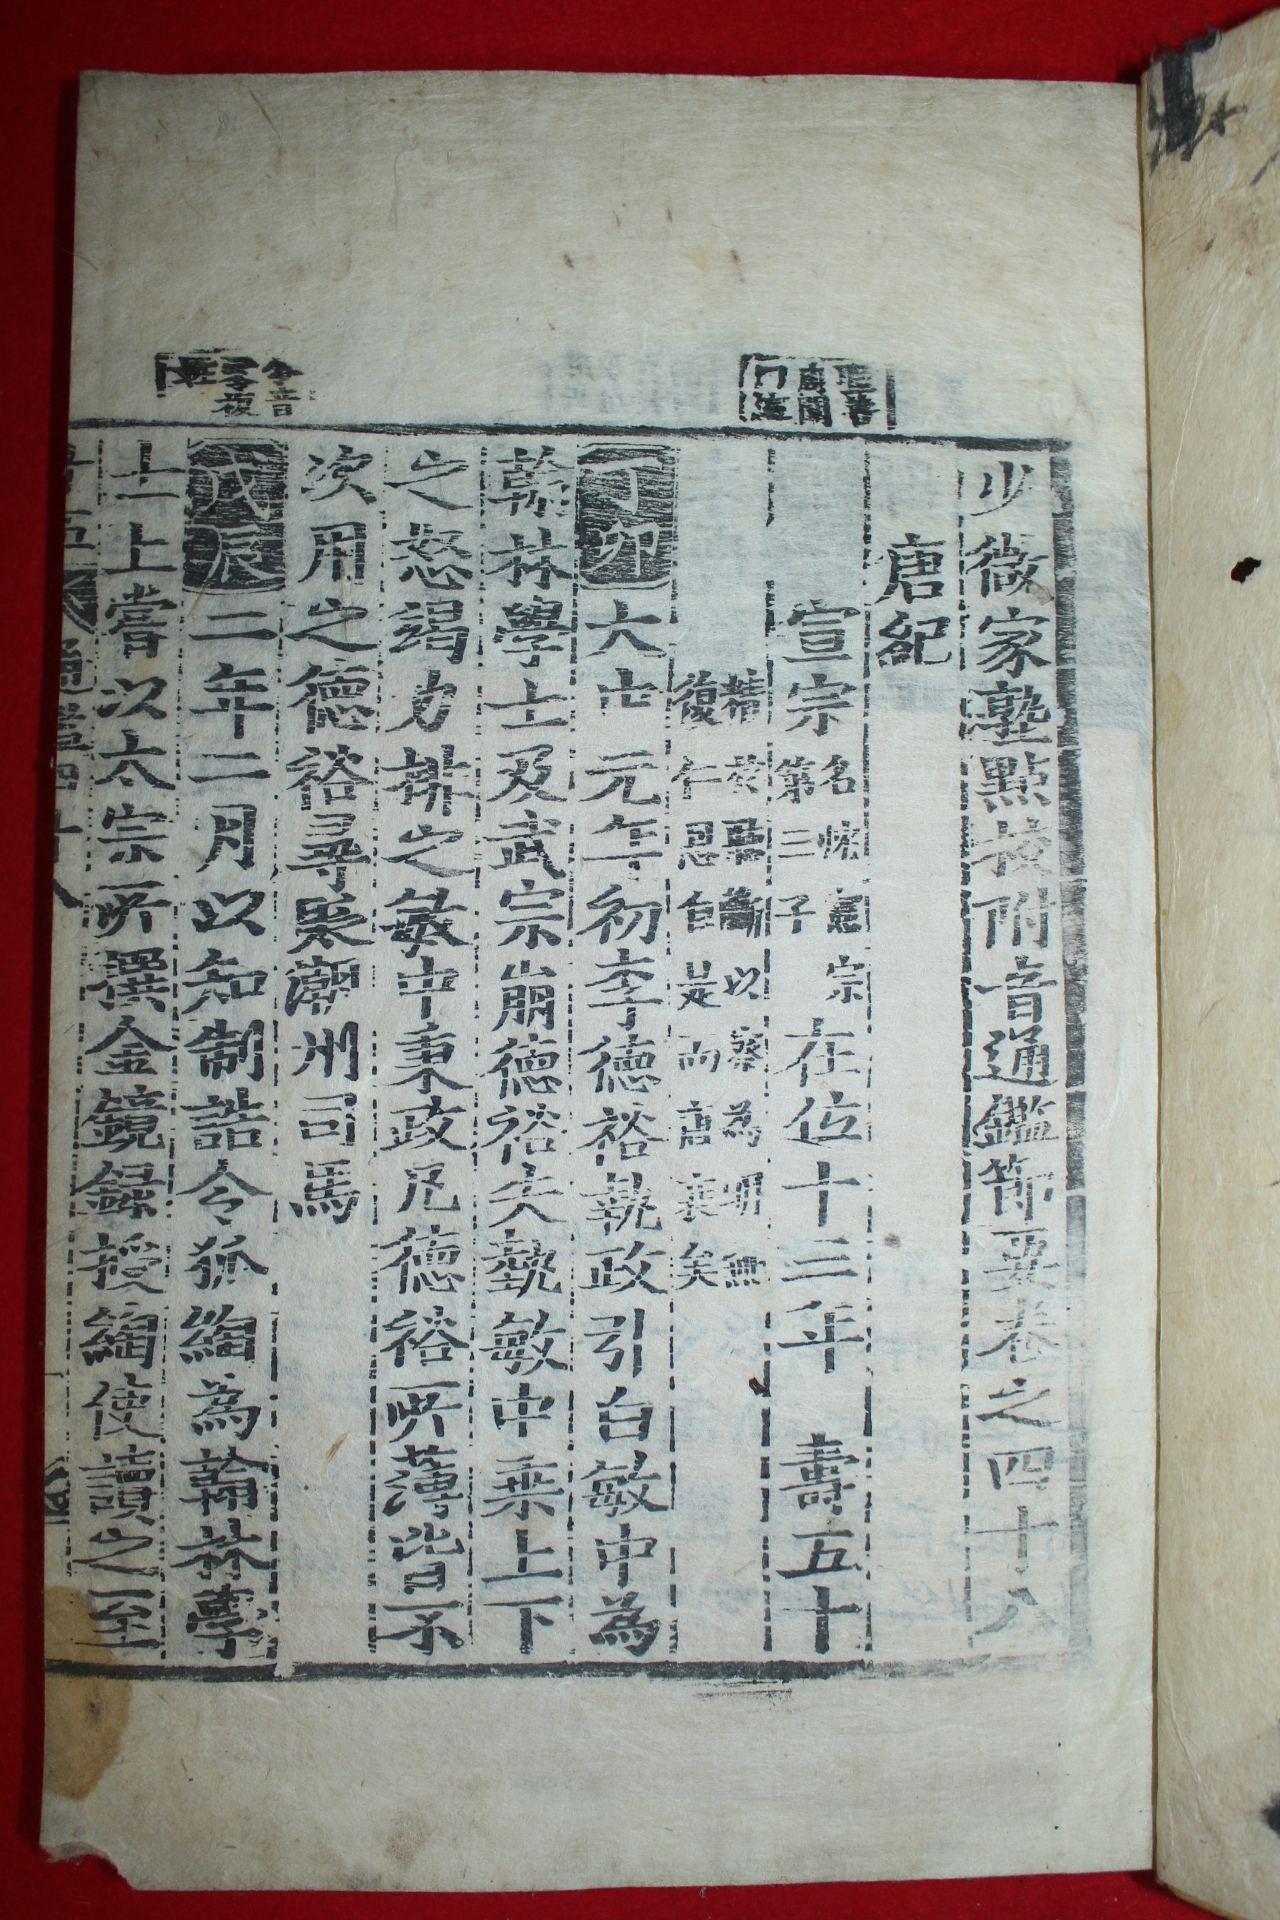 少微家塾點校附音通鑑節要卷之四十八
唐紀
宣宗 名忱憲宗第三子 在位十三年 壽五十
精於聽斷以察為明無
復仁恩自是而唐衰矣
丁卯大中元年初李德裕執政引白敏中為
翰林學士及武宗崩德裕失勢敏中乘上下
之怒竭力排之敏中秉政凡德裕所薄皆不
次用之德裕尋貶潮州司馬
戊辰二年二月以知制誥令狐綯為翰林學
士上嘗以太宗所撰金鏡錄授綯使讀之至